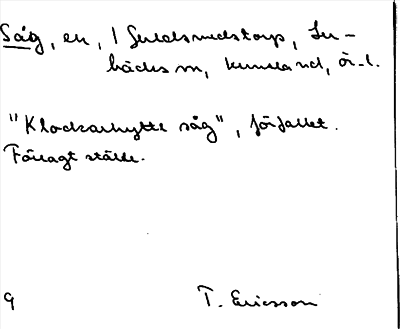 Såg, en, i Guldsmedstorp, Lu-
bäcks m, Kumla hd, Ör. l.
"Klockarhytte såg", förfallet.
Förlagt ställe.
9 T. Ericsson